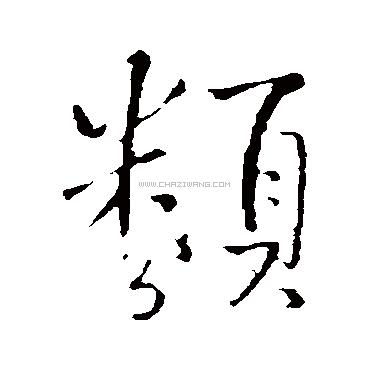 類
WWW.CHAZIWANG.COM